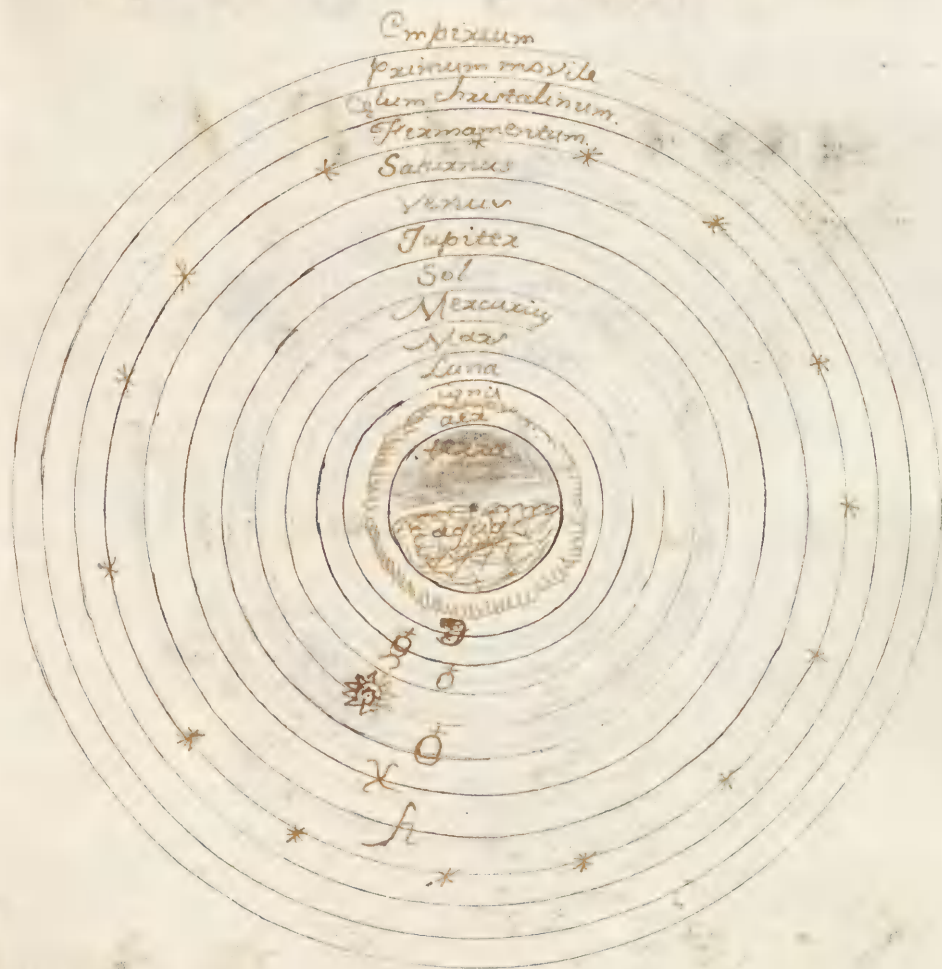 Empirium
primum movile
Cælum christalinum.
Firmamentum.
Saturnus
Venus
Jupiter
Sol
Mercurius
Mars
Luna
ignis
aer
terra
aqua